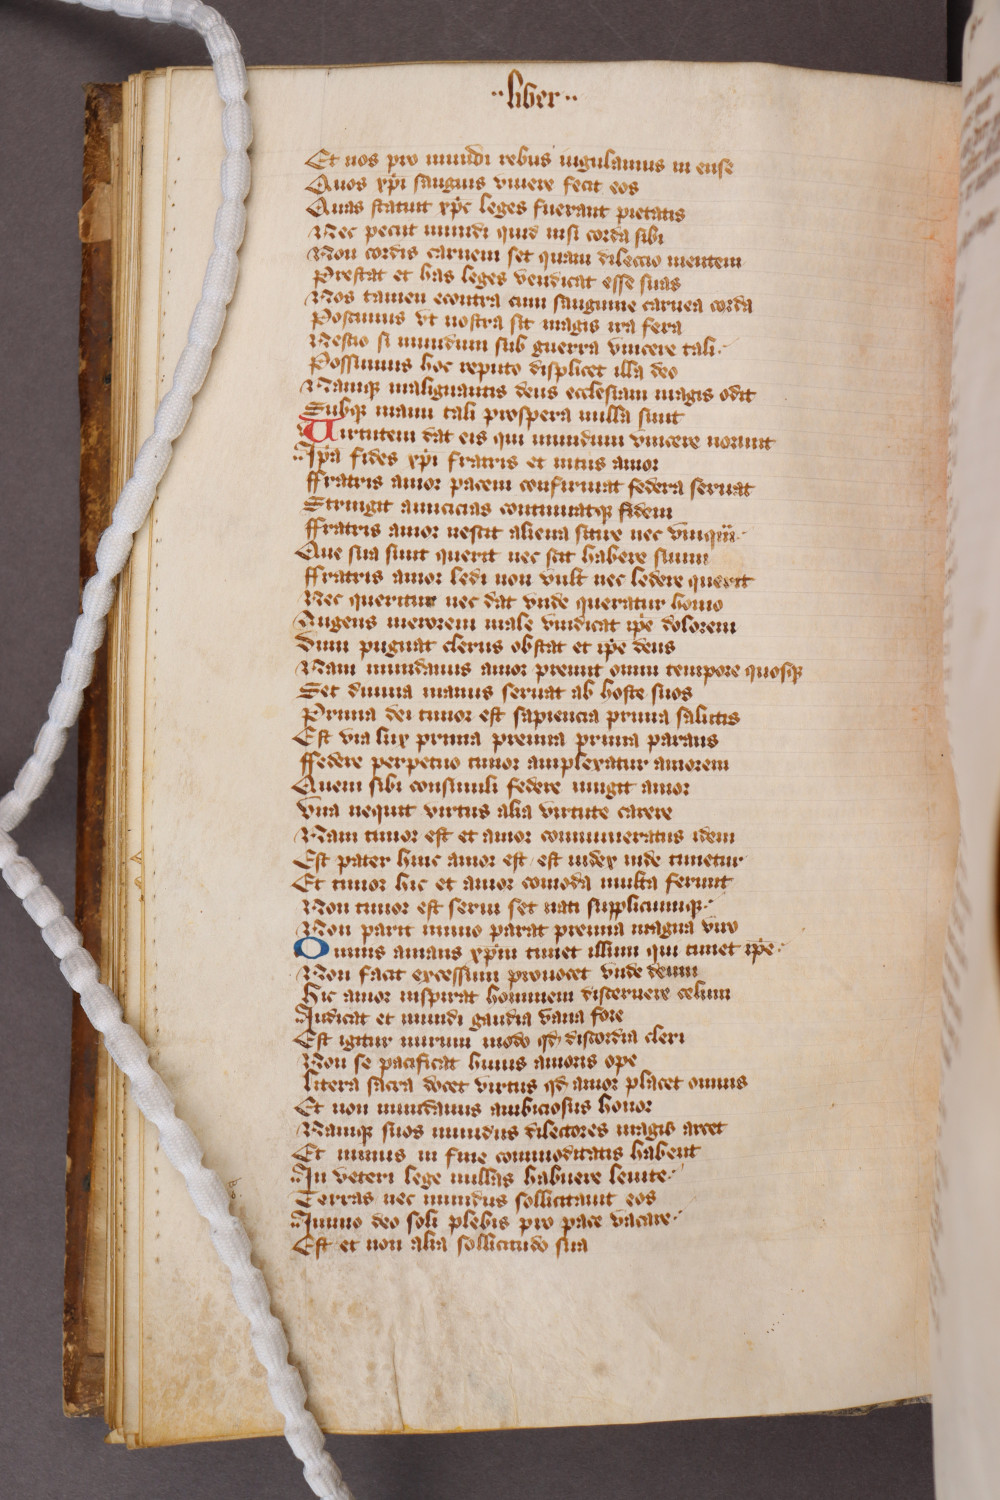 ·· liber ··
Et nos pro mundi rebus iugulamus in ense
Quos xpi sanguis viuere fecit eos
Quas statuit xpc leges fuerant pietatis
Nec peciit mundi quid nisi corda sibi
Non cordis carnem set quam dileccio mentem
Prestat et has leges vendicat esse suas
Nos tamen econtra cum sanguine carnea corda
Poscimus vt nostra sit magis ira fera
Nescio si mundum sub guerra vincere tali
Possimus hoc reputo displicet illa deo
Namqꝫ malignantis deus ecclesiam magis odit
Subqꝫ manu tali prospera nulla sunt
Uirtutem dat eis qui mundum vincere norunt
Ipa fides xpi fratris et intus amor
ffratris amor pacem confirmat federa seruat
Stringit amicicias continuatqꝫ fidem
ffratris amor nescit aliena sitire nec vnq̄
Que sua sunt querit nec scit habere suum
ffratris amor ledi non vult nec ledere querit
Nec queritur nec dat vnde queratur homo
Augens merorem male vindicat ipe dolorem
dum pugnat clerus obstat et ipe deus
Nam mundanus amor premit omni tempore quosqꝫ
Set diuina manus seruat ab hoste suos
Prima dei timor est sapiencia prima salutis
Est via lux prima premia prima parans
ffedere perpetuo timor amplexatur amorem
Quem sibi consimili federe iungit amor
vna nequit virtus alia virtute carere
Nam timor est et amor connumeratus idem
Est pater hinc amor est est iudex inde timetur
Et timor hic et amor comoda multa ferunt
Non timor est serui set nati suppliciumqꝫ
Non parit immo parat premia magna viro
Omnis amans xpm timet illum qui timet ipe
Non facit excessum prouocet vnde deum
Hic amor inspirat hominem discernere celum
Iudicat et mundi gaudia vana fore
Est igitur mirum modo qd discordia cleri
Non se pacificat huius amoris ope
litera sacra docet virtus qd amor placet omnis
Et non mundanus ambiciosus honor
Namqꝫ suos mundus dilectores magis artet
Et minus in fine commoditatis habent
In veteri lege nullas habuere leuite
Terras nec mundus sollicitauit eos
Immo deo soli plebis pro pace vacare
Est et non alia sollicitudo sua